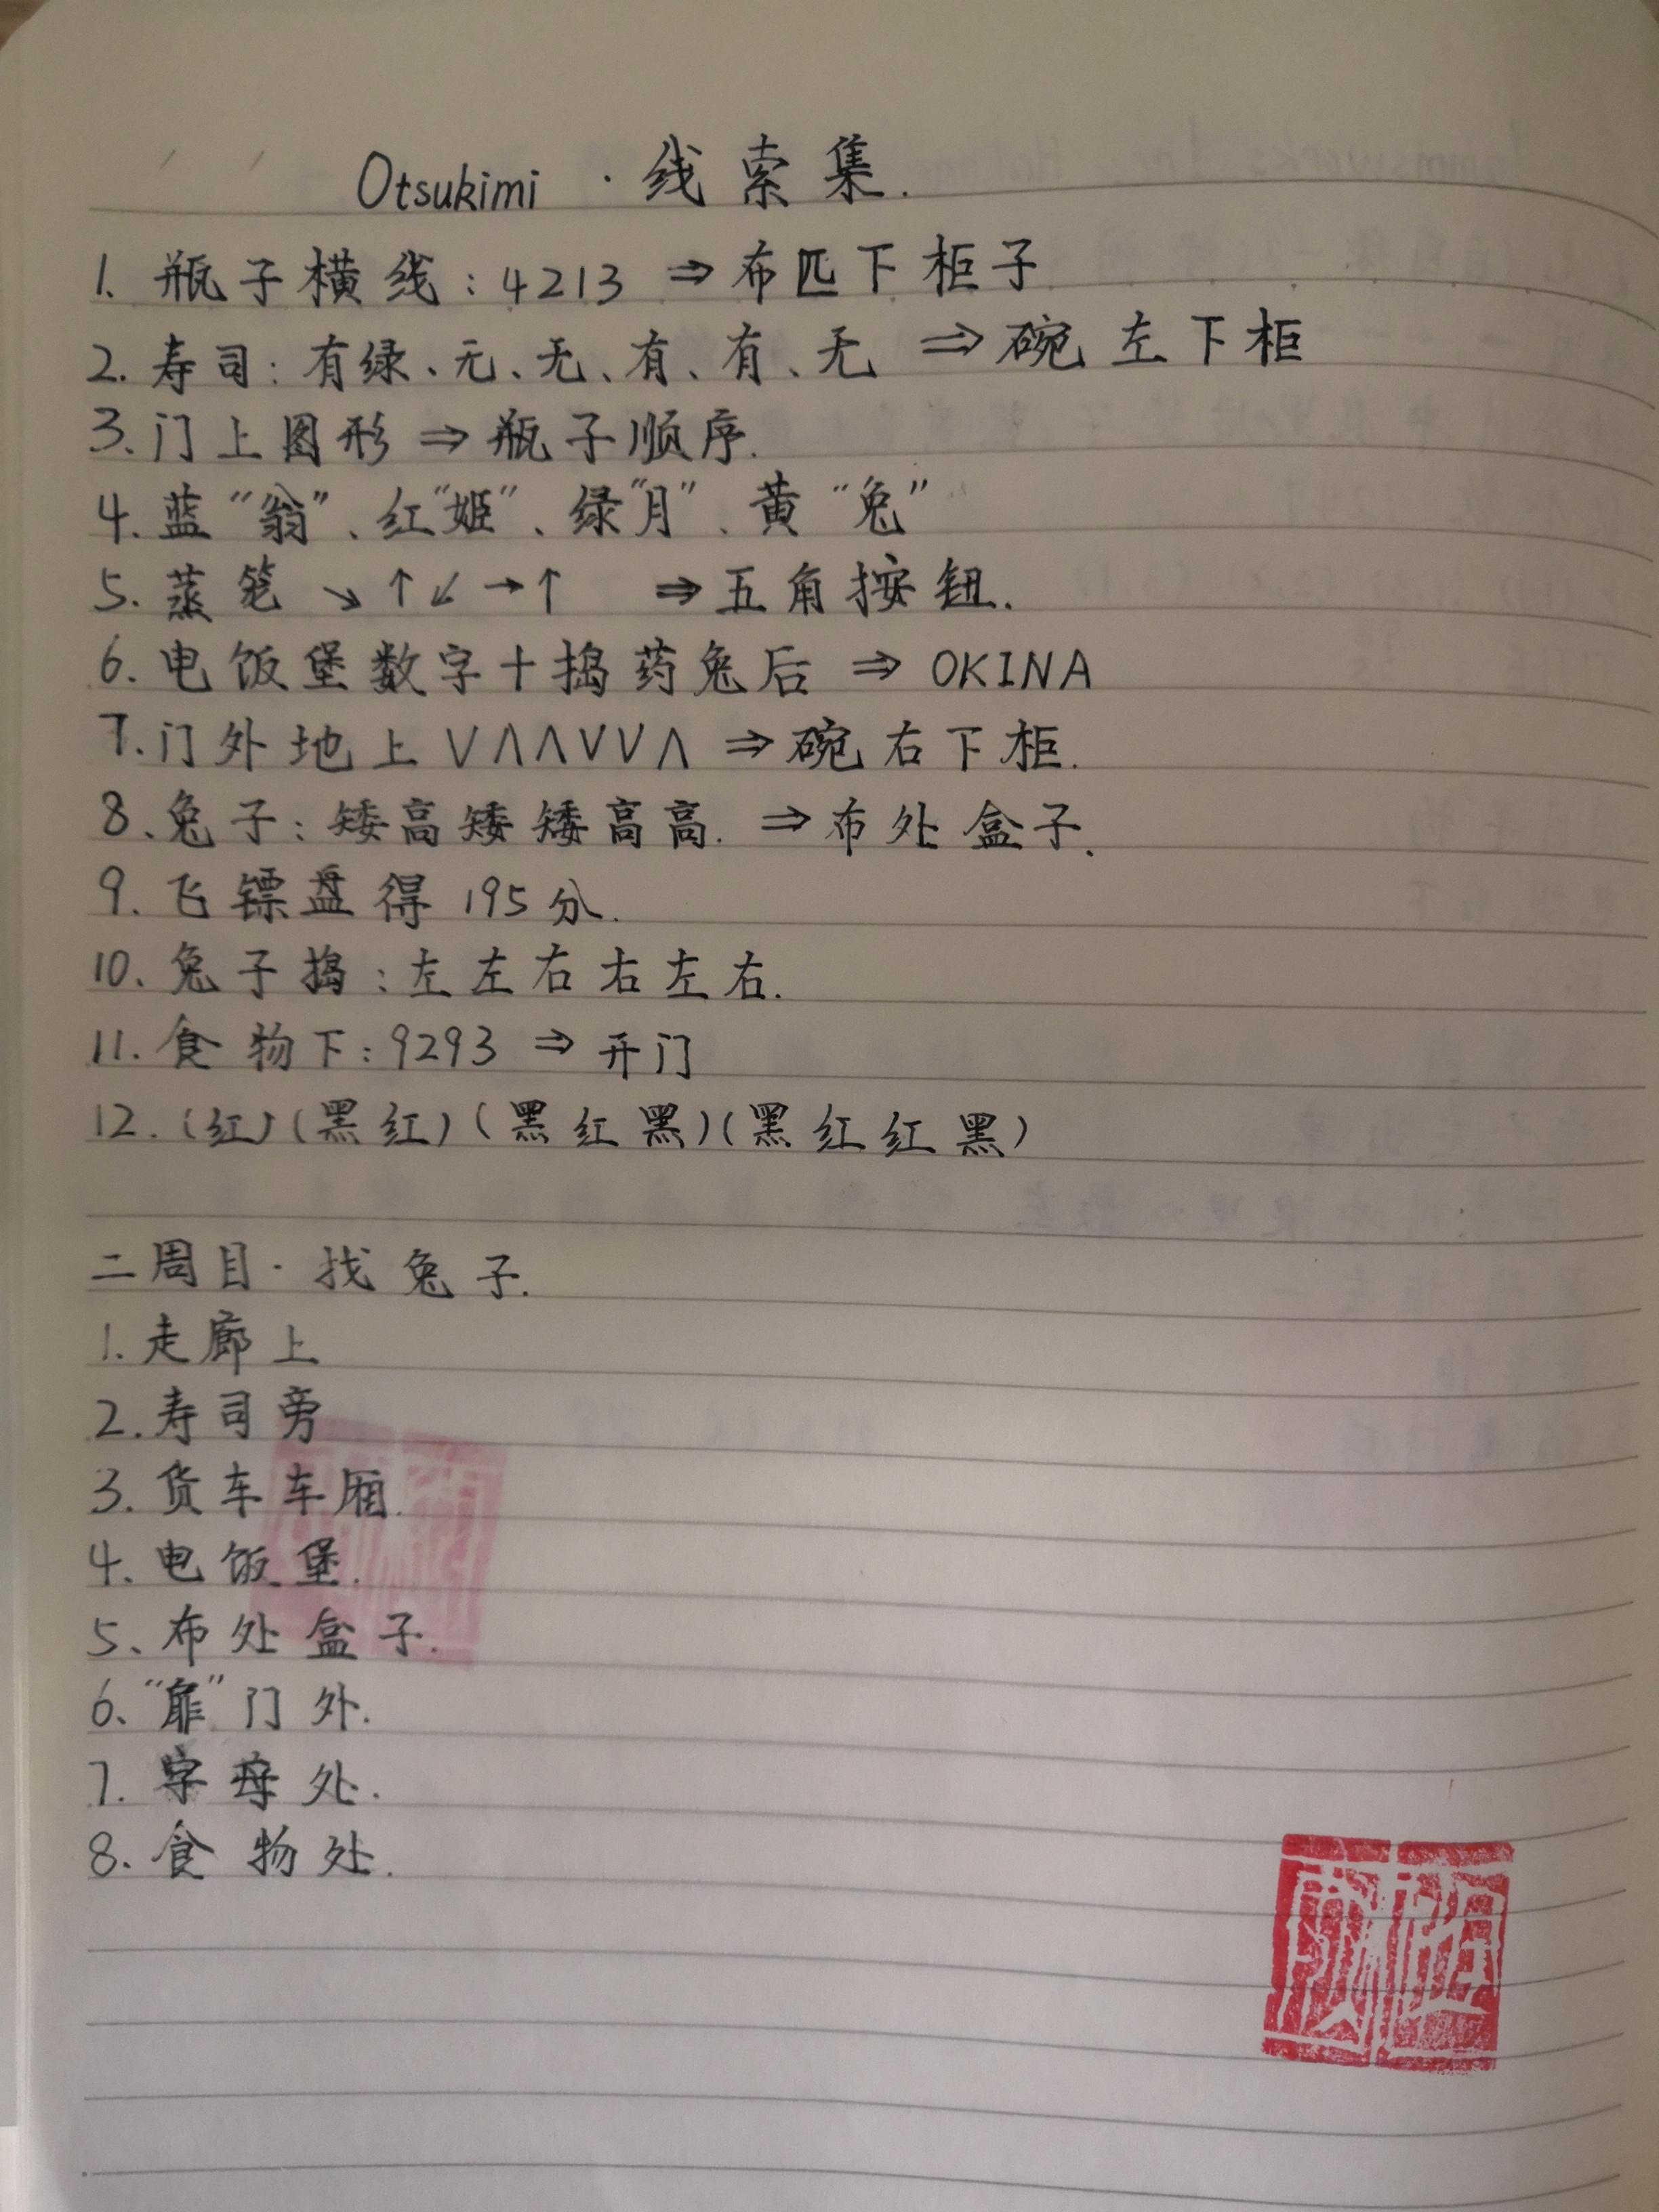 Otsukimi · 线索集.
1. 瓶子横线: 4213 ⇒ 布匹下柜子
2. 寿司: 有绿、无、无、有、有、无 ⇒ 碗左下柜
3. 门上图形 ⇒ 瓶子顺序.
4. 蓝“翁”、红“姬”、绿“月”、黄“兔”
5. 蒸笼 ↘↑↙→↑ ⇒ 五角按钮.
6. 电饭堡数字+捣药兔后 ⇒ OKINA
7. 门外地上 V∧∧VV∧ ⇒ 碗右下柜.
8、兔子: 矮高矮矮高高. ⇒ 布处盒子.
9. 飞镖盘得 195分.
10. 兔子捣: 左左右右左右.
11. 食物下: 9293 ⇒ 开门
12. (红)(黑红)(黑红黑)(黑红红黑)
二周目·找兔子.
1. 走廊上
2. 寿司旁
3. 货车车厢.
4. 电饭堡.
5、布处盒子.
6、“扉”门外.
7. 字母处.
8. 食物处.